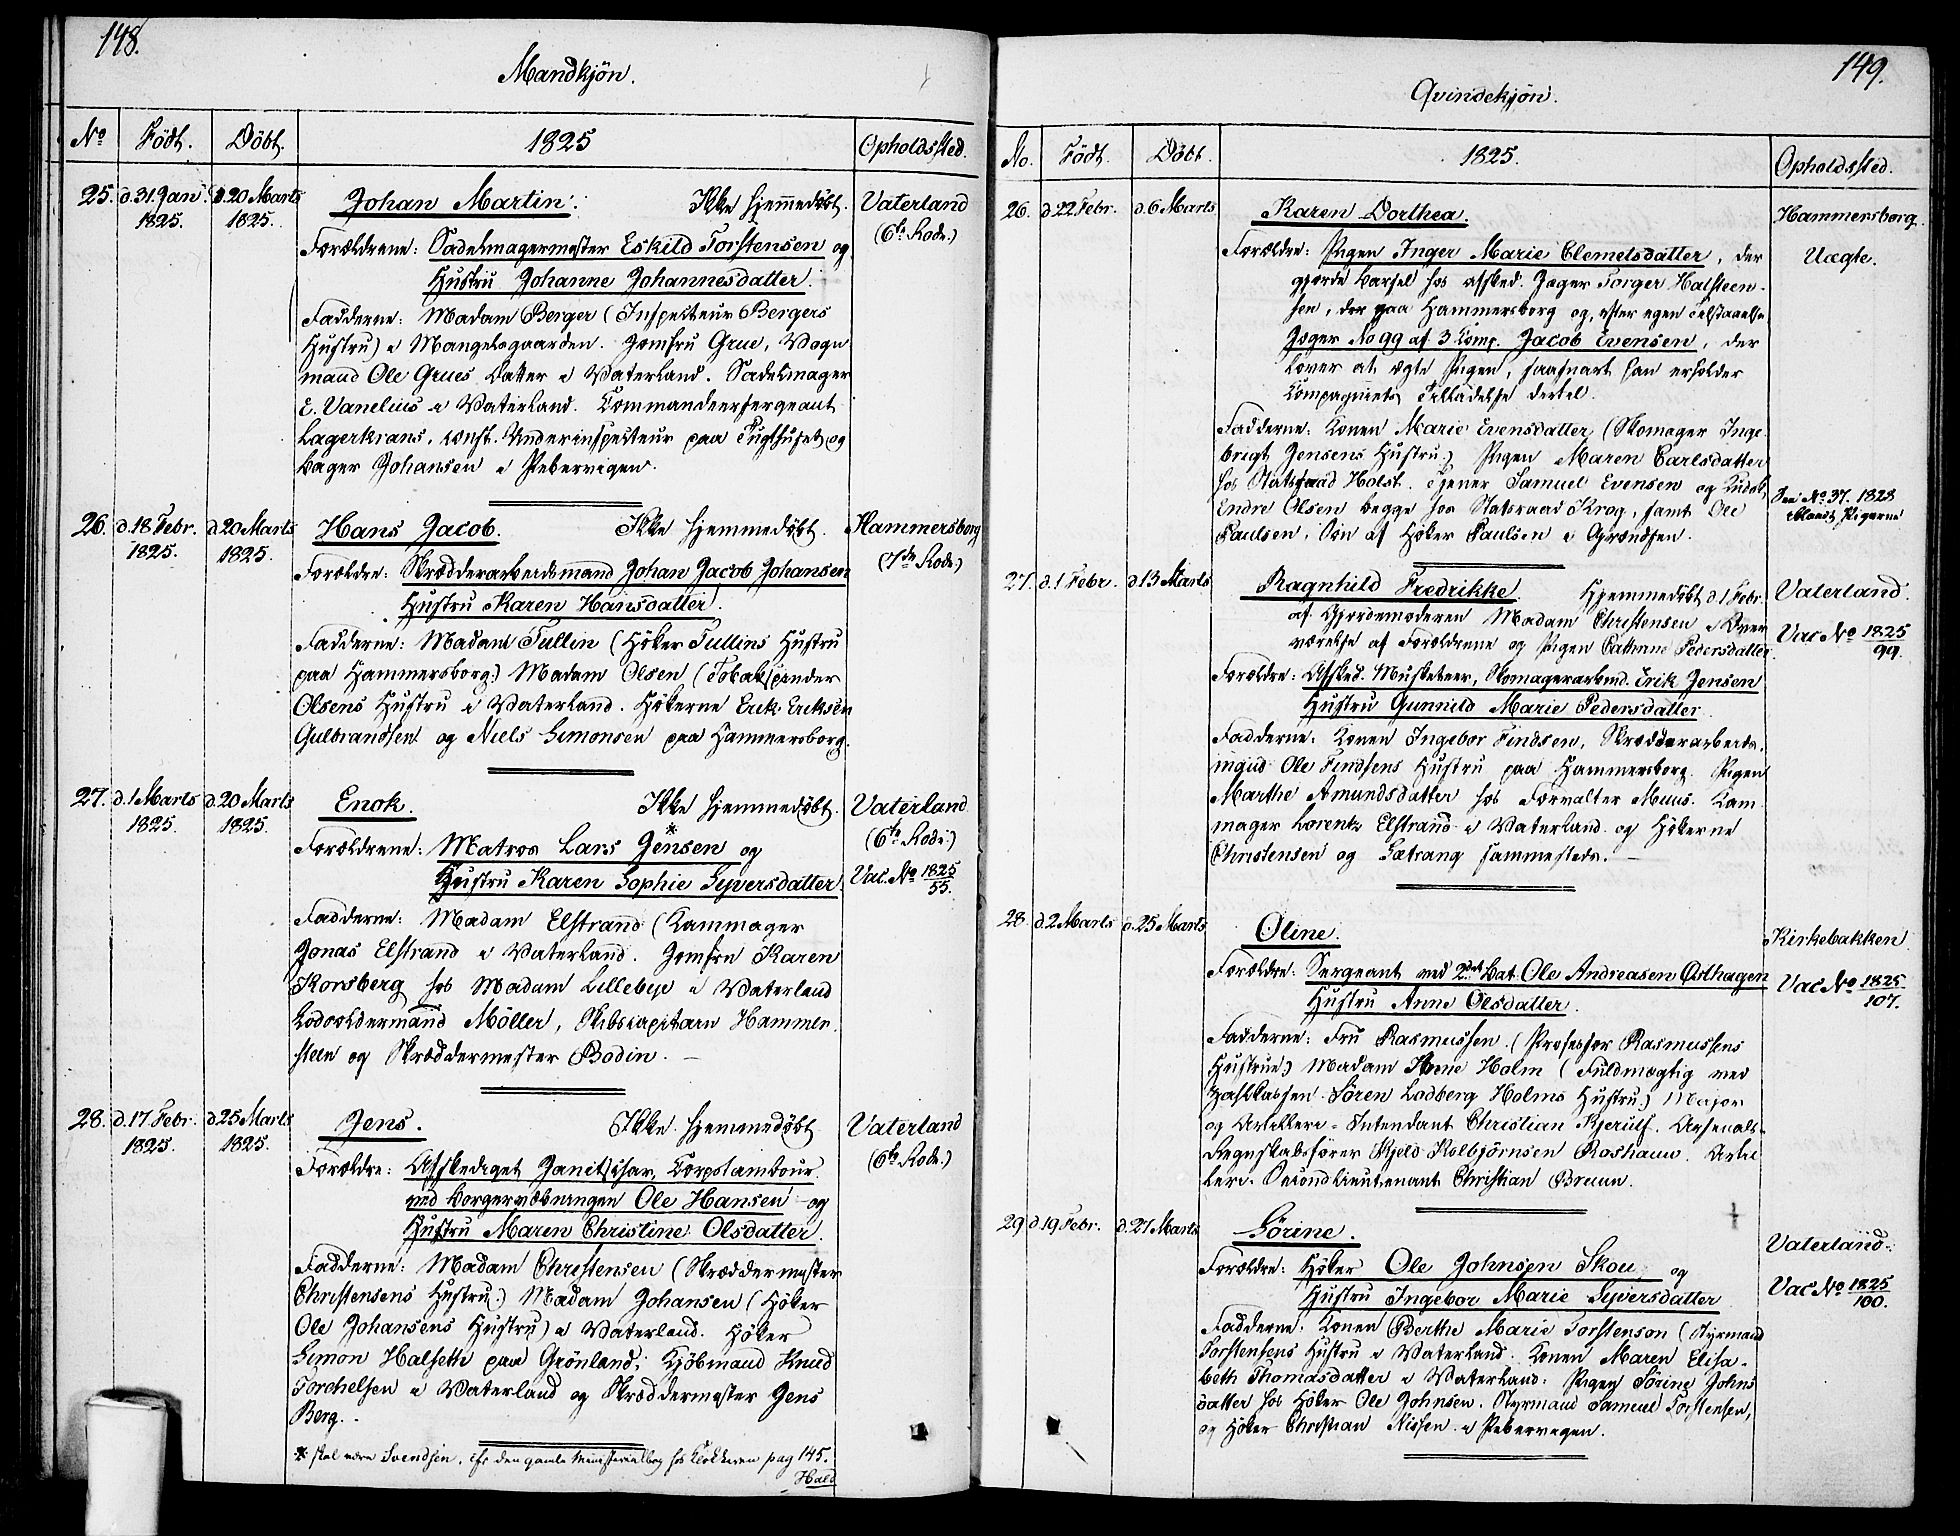 148.
Mandkjön.
No Födt. Döbt. 1825 Opholdssted.
25. d. 31. Jan. 1825. d. 20 Marts 1825. Johan Martin. Ikke hjemmedöbt. Vaterland (6te Rode.)
Forældrene: Sadelmagermester Eskild Torstensen og
Hustru Johanne Johannesdatter.
Fadderne: Madam Berger (Inspecteur Bergers
Hustru) i Mangelsgaarden. Jomfru Grue, Vogn
mand Ole Grues Datter i Vaterland. Sadelmager
E. Vanelius i Vaterland. Commandeersergeant
Lagerkrans, const. Underinspecteur paa Tugthuset og
Bager Johansen i Pebervigen.
26. d. 18 Febr. 1825. d. 20 Marts 1825. Hans Jacob. Ikke hjemmedöbt. Hammersborg (7de Rode.)
Forældre: Skrædderarbeidsmand Johan Jacob Johansen
Hustru Karen Hansdatter.
Fadderne: Madam Tullin (Höker Tullins Hustru
paa Hammersborg.) Madam Olsen (Tobakspinder
Olsens Hustru i Vaterland. Hökerne Erik Eriksen
Gulbrandsen og Niels Simonsen paa Hammersborg.
27. d. 1 Marts 1825. d. 20 Marts 1825. Enok. Ikke hjemmedöbt. Vaterland (6te Rode.)
Forældrene: Matros Lars Jensen* og
Hustru Karen Sophie Syversdatter Vac. No 1825/55.
Fadderne: Madam Elstrand (Kammager
Jonas Elstrand i Vaterland. Jomfru Karen
Korsberg hos Madam Lillebye i Vaterland
Lodsoldermand Möller, Skibscapitain Hammer
steen og Skræddermester Bodin. —
28. d. 17 Febr. 1825. d. 25 Marts 1825. Jens. Ikke hjemmedöbt Vaterland (6te Rode.)
Forældre: Afskediget Janitschar, Corpstambour
ved Borgervæbningen Ole Hansen og
Hustru Maren Christine Olsdatter.
Fadderne: Madam Christensen (Skræddermester
Christensens Hustru.) Madam Johansen (Höker
Ole Johansens Hustru) i Vaterland. Höker
Simon Halseth paa Grönland, Kjöbmand Knud
Torchelsen i Vaterland og Skræddermester Jens
Berg.
* skal være Svendsen, cfr den gamle Ministerialbog hos Klokkeren pag 145.
Hald
149.
Qvindekjön.
No. Födt. Döbt. 1825. Opholdssted.
26. d 22 Febr. d. 6 Marts Karen Dorthea. Hammersborg.
Uægte.
Forældre: Pigen Inger Marie Clemetsdatter, der
gjorde Barsel hos afsked. Jæger Torger Halsteen-
sen, der paa Hammersborg og, efter egen Tilstaaelse
Jæger No 99 af 3 Comp. Jacob Evensen, der
lover at ægte Pigen, saasnart han erholder
Compagniets Tilladelse dertil.
Fadderne: Konen Marie Evensdatter (Skomager Inge
brigt Jensens Hustru.) Pigen Maren Carlsdatter
hos Statsraad Holst. Tjener Samuel Evensen og Kudsk
Endre Olsen begge hos Statsraad Krog, samt Ole
Paulsen, Sön af Höker Paulsen i Grændsen.
See No 37. 1828 blandt Pigerne
27. d. 1 Febr. d. 13 Marts Ragnhild Fredrikke Hjemmedöbt d 1 Febr. Vaterland.
af Gjordemoderen Madam Christensen i Over
værelse af Forældrene og Pigen Cathrine Pedersdatter. Vac No 1825/99.
Forældre: Afsked. Musketeer, Skomagerarbmd. Erik Jensen
Hustru Gunnild Marie Pedersdatter.
Fadderne: Konen Ingebor Findsen, Skrædderarbeids-
mand Ole Findsens Hustru paa Hammersborg. Pigen
Marthe Amundsdatter hos Forvalter Muus. Kam
mager Lorentz Elstrand i Vaterland og Hökerne
Christensen og Sætrang sammesteds. —
28. d. 2 Marts d. 25 Marts Oline. Kirkebakken
Forældre: Sergeant ved 2det Bat. Ole Andreasen Östhagen Vac No 1825/107.
Hustru Anne Olsdatter.
Fadderne: Fru Rasmussen (Professor Rasmussens
Hustrue.) Madam Anne Holm (Fuldmægtig ved
Zahlkassen Sören Lodberg Holms Hustru.) Major
og Artilleri-Intendant Christian Kjerulf. Arsenals-
Regnskabsförer Kjeld Kolbjörnsen Roshauw. Artil
leri-Secondlieutenant Christian Bruun.
29 d. 19 Febr. d. 27 Marts Sörine. Vaterland.
Forældre: Höker Ole Johnsen Skou og Vac No 1825/100.
Hustru Ingebor Marie Syversdatter
Fadderne: Konen Berthe Marie Torstenson (Styrmand
Torstensens Hustru i Vaterland. Konen Maren Elisa-
beth Thomasdatter i Vaterland. Pigen Sörine Johns
datter hos Höker Ole Johnsen. Styrmand Samuel Torstensen,
og Höker Christian Nissen i Pebervigen.